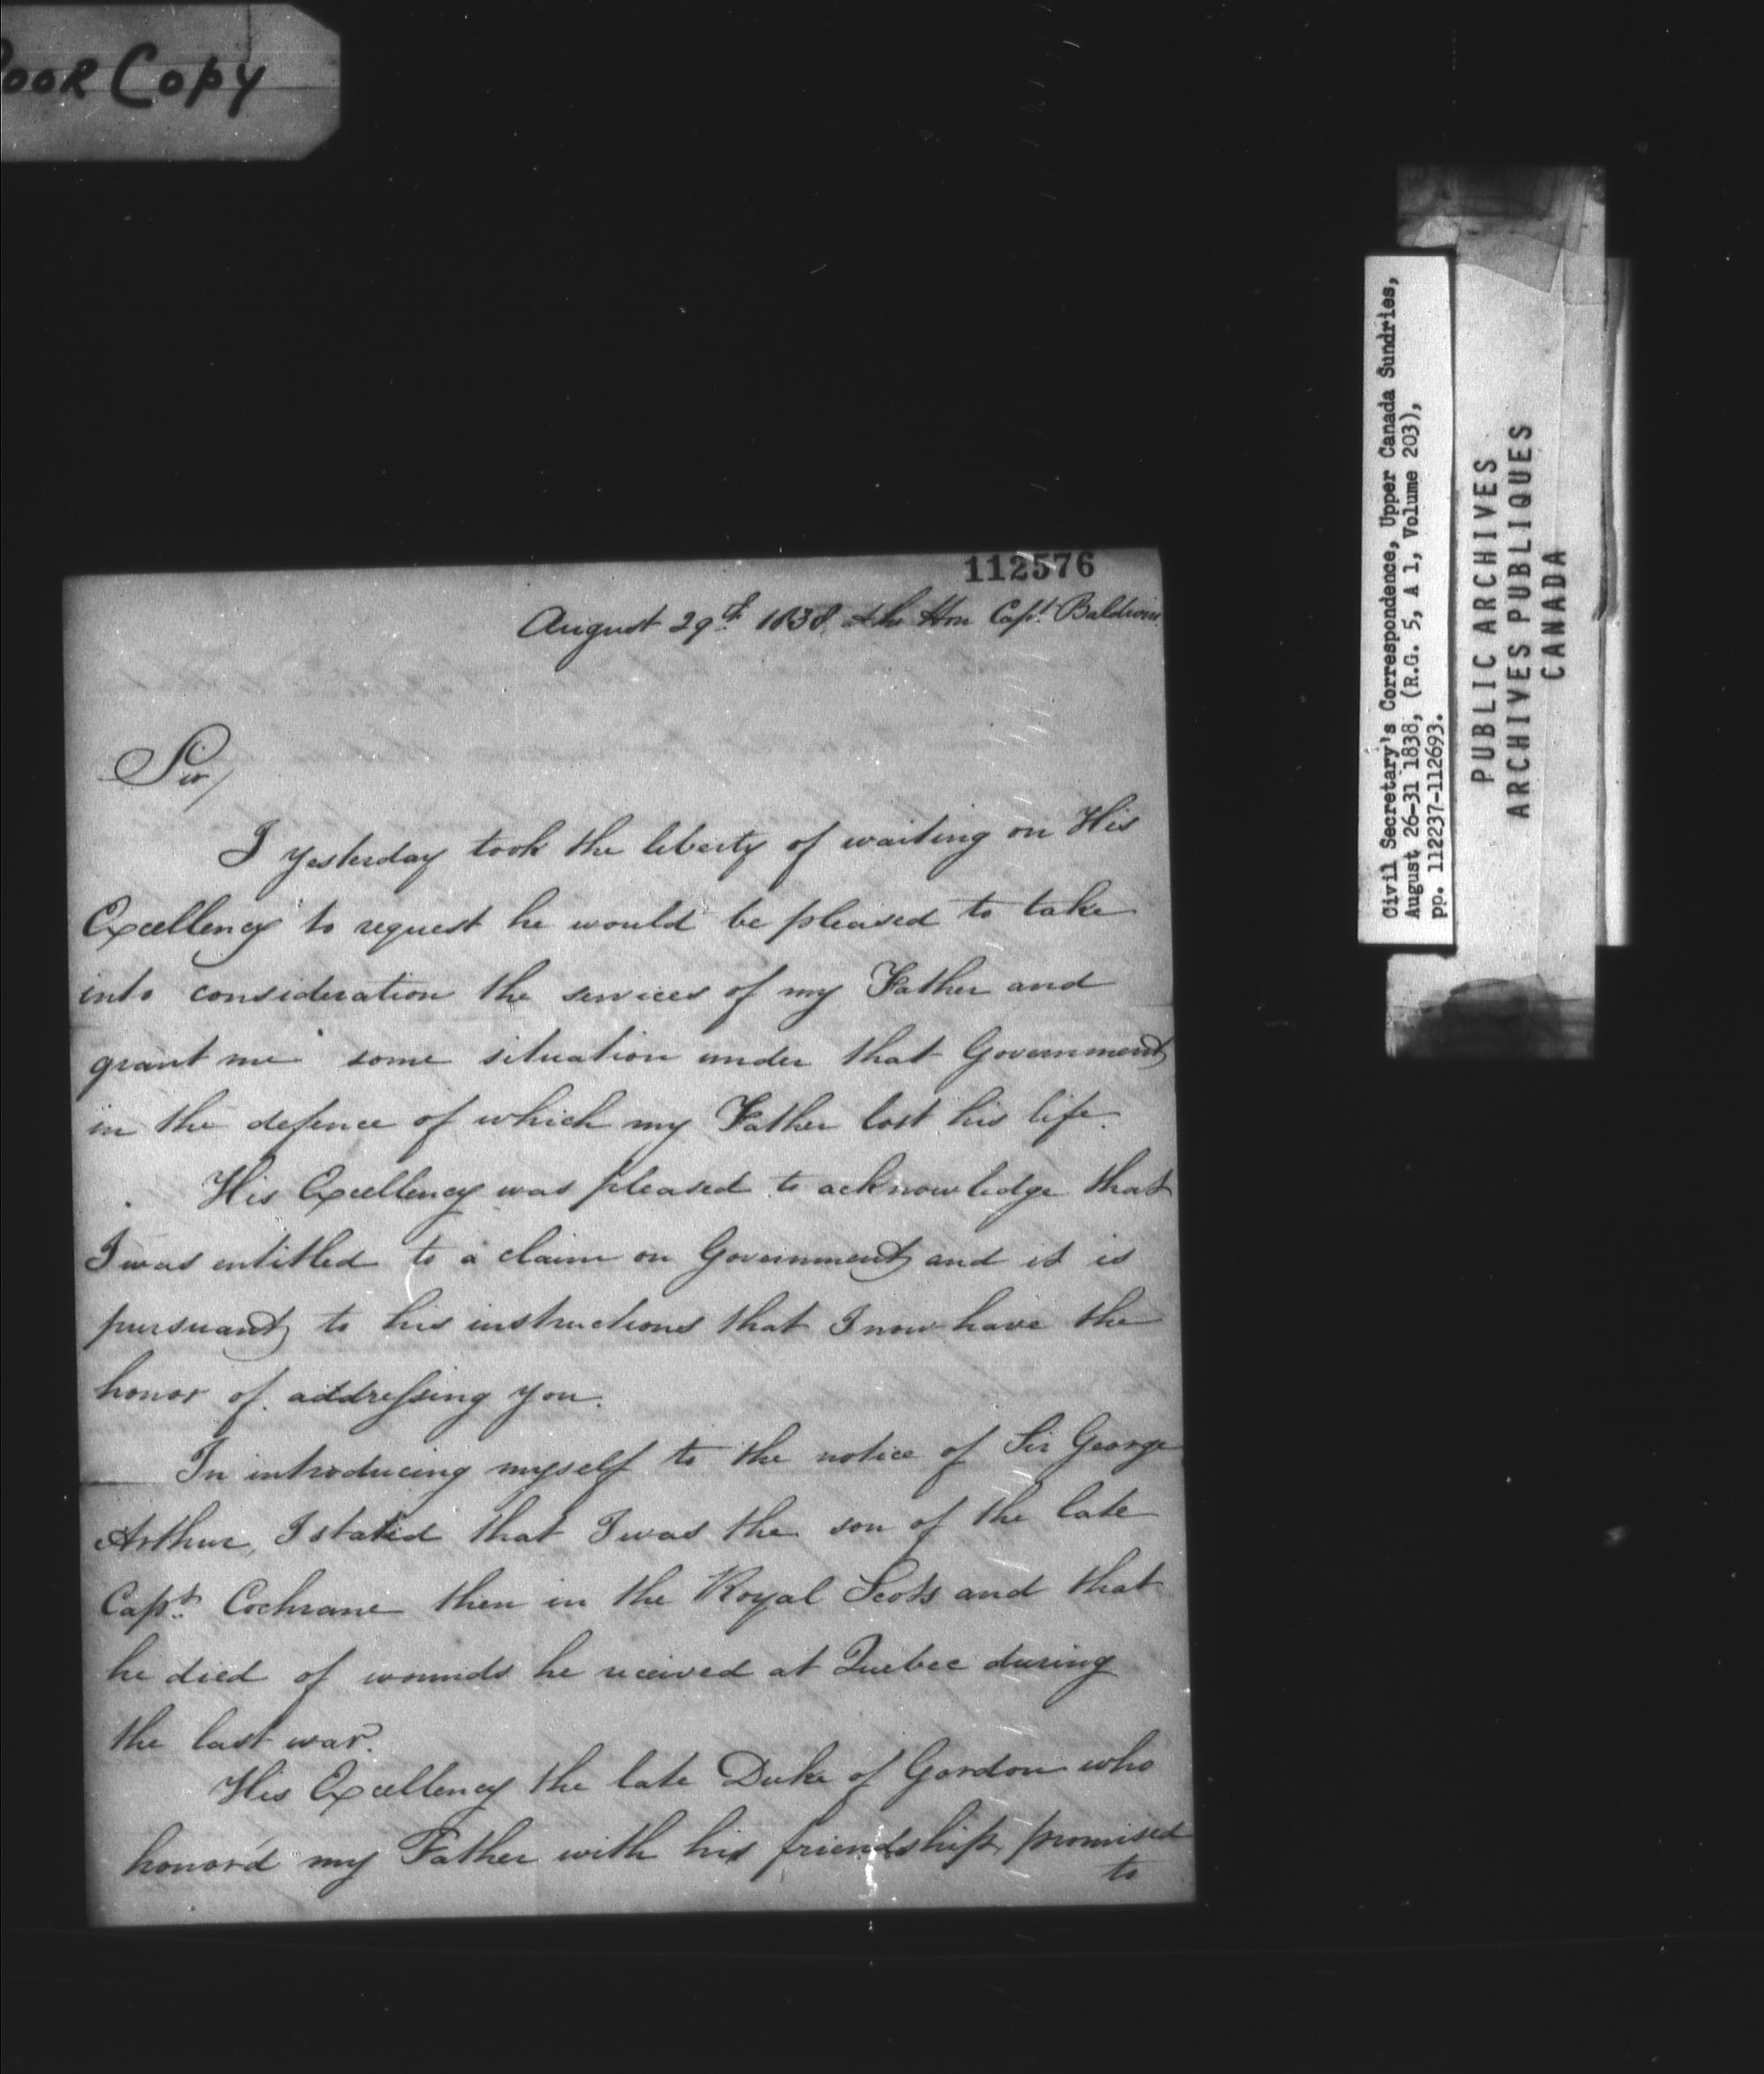 Poor Copy
112576
August 29th 1838 at the Hon Capt. Baldwin
Sir/
I yesterday took the liberty of waiting on His
Excellency to request he would be pleased to take
into consideration the services of my Father and
grant me some situation under that Government
in the defence of which my Father lost his life.
His Excellency was pleased to acknowledge that
I was entitled to a claim on Government and it is
pursuant to his instructions that I now have the
honor of addressing you.
In introducing myself to the notice of Sir George
Arthur, I stated that I was the son of the late
Capt. Cochrane then in the Royal Scots and that
he died of wounds he received at Quebec during
the last war.
His Excellency the late Duke of Gordon who
honor'd my Father with his friendship, promised
to
Civil Secretary's Correspondence, Upper Canada Sundries,
August 26-31 1838, (R.G. 5, A 1, Volume 203),
pp. 112237-112693.
PUBLIC ARCHIVES
ARCHIVES PUBLIQUES
CANADA